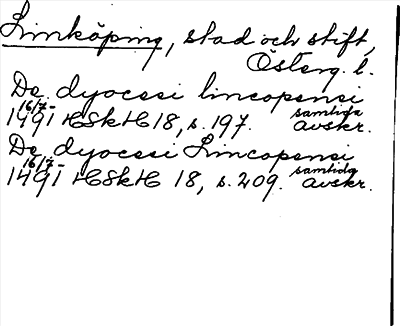 Linköping, stad och stift,
Österg. l.
De dyocesi lincopensi
16/7
1491 HSkH 18, s. 197. samtida avskr.
De dyocesi Lincopensi
16/7
1491 HSkH 18, s. 209. samtida avskr.